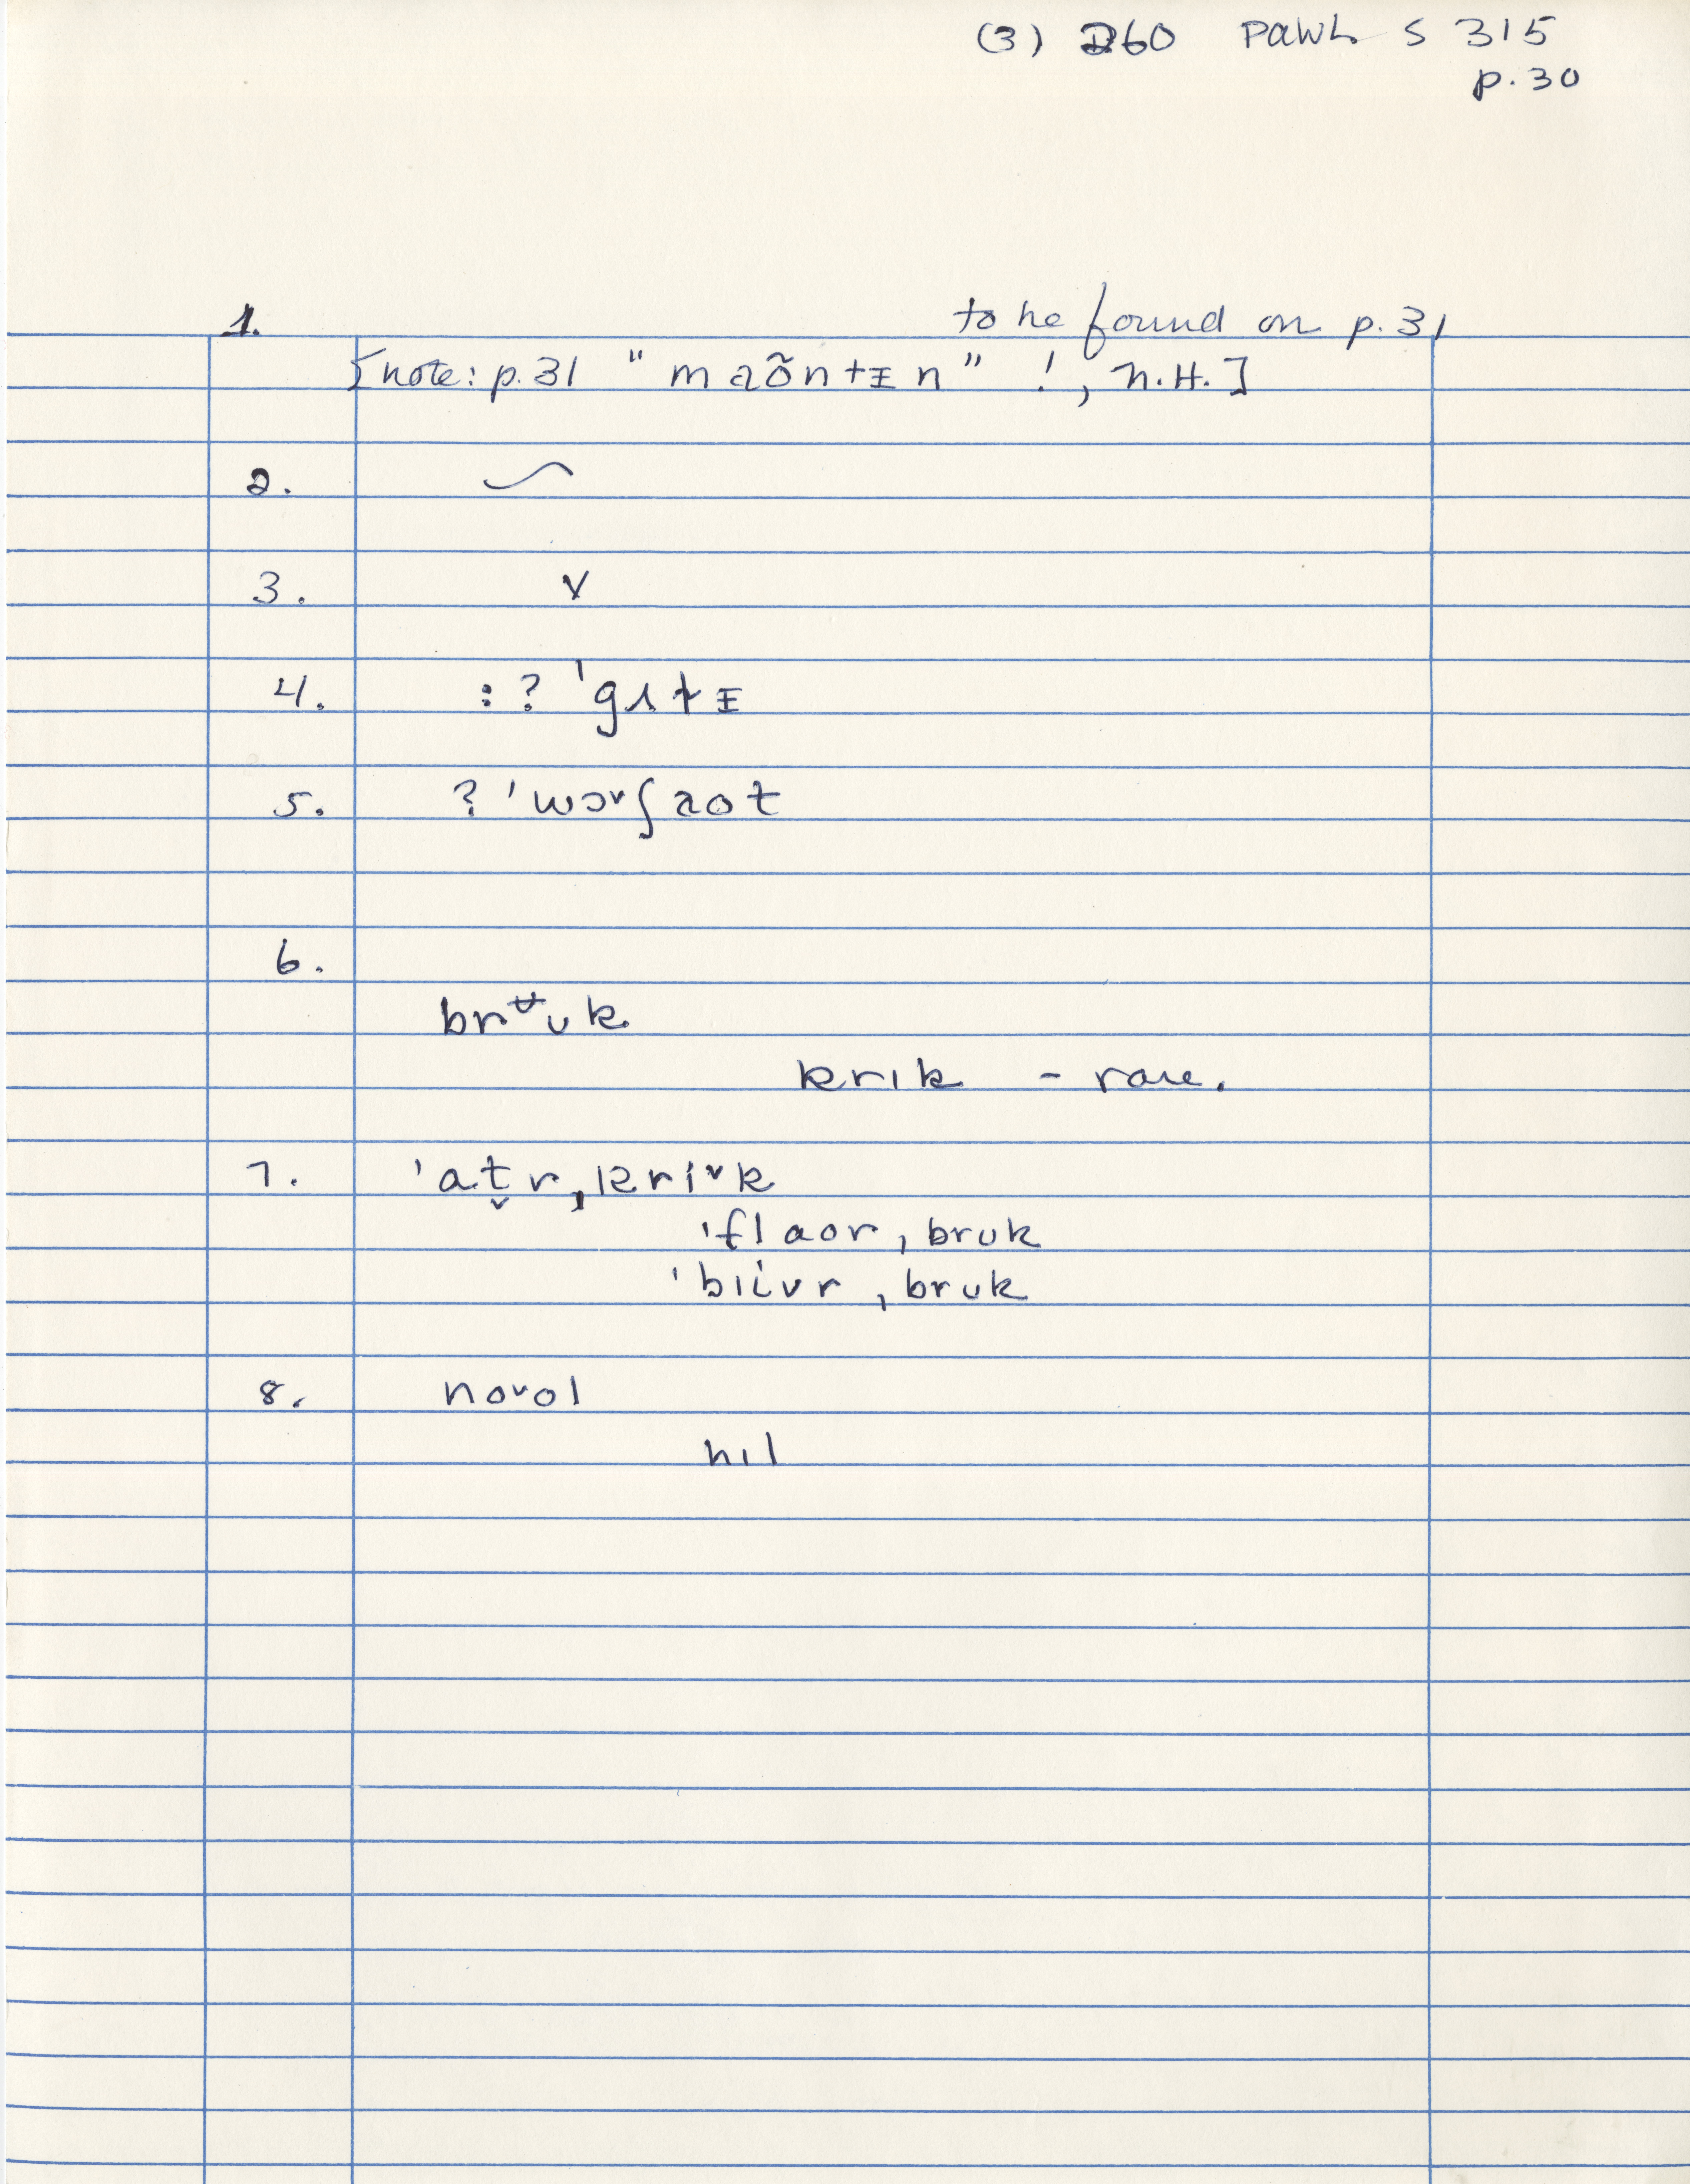 (3) 260 PAWL S 315
p.30
1. to be found on p.31
[note: p.31 "maõntɪn" !, N.H.]
2.
3. v
4. :? 'gʌtɪ
5. ? 'wɔvʃaot
6.
bruk
krik - rare.
7. 'at̬r,kriᵛk
'flaor,bruk
'blivr,bruk
8. noᵛol
hil